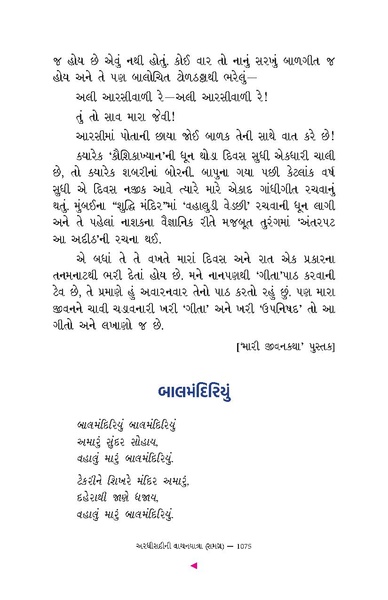 જ હોય છે એવું નથી હોતું. કોઈ વાર તો નાનું સરખું બાળગીત જ
હોય અને તે પણ બાલોચિત ટોળઠઠ્ઠાથી ભરેલું—
અલી આરસીવાળી રે—અલી આરસીવાળી રે!
તું તો સાવ મારા જેવી!
આરસીમાં પોતાની છાયા જોઈ બાળક તેની સાથે વાત કરે છે!
ક્યારેક ‘કૌશિકાખ્યાન’ની ધૂન થોડા દિવસ સુધી એકધારી ચાલી
છે, તો ક્યારેક શબરીનાં બોરની. બાપુના ગયા પછી કેટલાંક વર્ષ
સુધી એ દિવસ નજીક આવે ત્યારે મારે એકાદ ગાંધીગીત રચવાનું
થતું. મુંબઈના “શુદ્ધિ મંદિર”માં ‘વહાલુડી વેડછી’ રચવાની ધૂન લાગી
અને તે પહેલાં નાશકના વૈજ્ઞાનિક રીતે મજબૂત તુરંગમાં ‘અંતરપટ
આ અદીઠ’ની રચના થઈ.
એ બધાં તે તે વખતે મારાં દિવસ અને રાત એક પ્રકારના
તનમનાટથી ભરી દેતાં હોય છે. મને નાનપણથી ‘ગીતા’પાઠ કરવાની
ટેવ છે, તે પ્રમાણે હું અવારનવાર તેનો પાઠ કરતો રહું છું. પણ મારા
જીવનને ચાવી ચડાવનારી ખરી ‘ગીતા’ અને ખરી ‘ઉપનિષદ’ તો આ
ગીતો અને લખાણો જ છે.
[‘મારી જીવનકથા’ પુસ્તક]
બાલમંદિરિયું
બાલમંદિરિયું બાલમંદિરિયું
અમારું સુંદર સોહાય,
વહાલું મારું બાલમંદિરિયું.
ટેકરીને શિખરે મંદિર અમારું,
દહેરાથી જાણે ધજાય,
વહાલું મારું બાલમંદિરિયું.
અરધીસદીની વાચનયાત્રા (સમગ્ર) — 1075